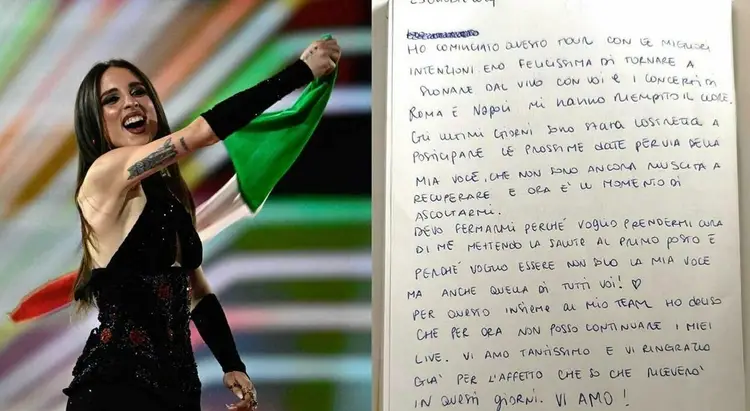 HO COMINCIATO QUESTO TOUR CON LE MIGLIORI
INTENZIONI. ERO FELICISSIMA DI TORNARE A
SUONARE DAL VIVO CON VOI E I CONCERTI DI
ROMA E NAPOLI MI HANNO RIEMPITO IL CUORE.
GLI ULTIMI GIORNI SONO STATA COSTRETTA A
POSTICIPARE LE PROSSIME DATE PER VIA DELLA
MIA VOCE, CHE NON SONO ANCORA RIUSCITA A
RECUPERARE E ORA E' IL MOMENTO DI
ASCOLTARMI.
DEVO FERMARMI PERCHÉ VOGLIO PRENDERMI CURA
DI ME METTENDO LA SALUTE AL PRIMO POSTO E
PERCHÉ VOGLIO ESSERE NON SOLO LA MIA VOCE
MA ANCHE QUELLA DI TUTTI VOI! ♡
PER QUESTO INSIEME AL MIO TEAM HO DECISO
CHE PER ORA NON POSSO CONTINUARE I MIEI
LIVE. VI AMO TANTISSIMO E VI RINGRAZIO
GIA' PER L'AFFETTO CHE SO CHE RICEVERO'
IN QUESTI GIORNI. VI AMO!